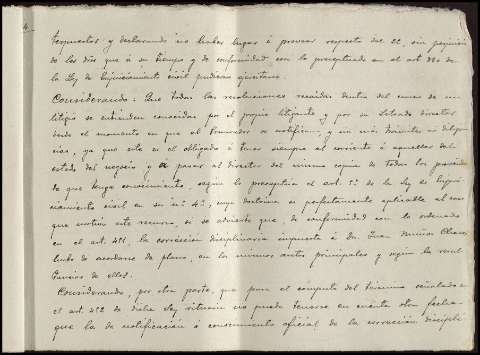 terpuestos y declarando no haber lugar á proveer respecto del 2º, sin perjuicio
de los días que á su tiempo y de conformidad con lo preceptuado en el art. de
la Ley de Enjuiciamiento civil pudieran
Considerando: Que todas las resoluciones recaídas dentro del curso de un
litigio se entienden conocidas por el propio litigante y por su Letrado director
desde el momento en que al Procurador se notifican, y sin más trámites ni diligen-
cias, ya que este es el obligado á tener siempre al corriente á aquellos del
estado del negocio y á pasar al director del mismo copia de todas las providencias
de que tenga conocimiento, según lo preceptua el art. 5º de la ley de Enjui-
ciamiento civil en su nº 4º, cuya doctrina es perfectamente aplicable al caso
que motiva este recurso, si se advierte que, de conformidad con lo ordenado
en el art. 451, la corrección disciplinaria impuesta á Dn. Juan Muñoz
hubo de acordarse de plano, en los mismos autos principales y según la resul-
tancia de ellos.
Considerando, por otra parte, que para el cómputo del término señalado en
el art. 452 de dicha ley rituaria no puede tenerse en cuenta otra fecha
que la de notificación ó conocimiento oficial de la corrección discipli-